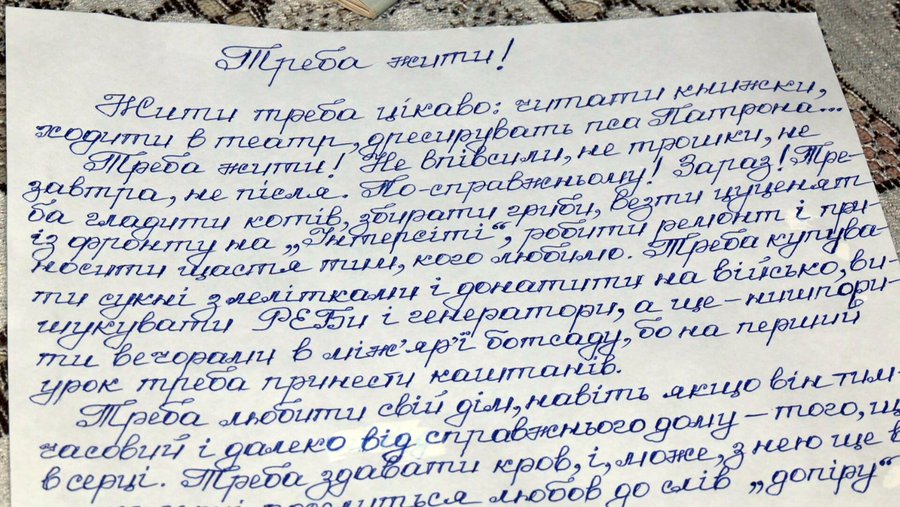 Треба жити!
Жити треба цікаво: читати книжки,
ходити в театр, дресирувать пса Патрона...
Треба жити! Не впівсили, не трошки, не
завтра, не після. По-справжньому! Зараз! Тре-
ба гладити котів, збирати гриби, везти цуценят
із фронту на „Інтерсіті", робити ремонт і при-
носити щастя тим, кого любимо. Треба купува-
ти сукні з лелітками і донатити на військо, ви-
шукувати РЕБи і генератори, а ще – нишпори-
ти вечорами в між'яр'ї ботсаду, бо на перший
урок треба принести каштанів.
Треба любити свій дім, навіть якщо він тим-
часовий і далеко від справжнього дому – того, щ
в серці. Треба здавати кров, і, може, з нею ще в
любов до слів „допіру"